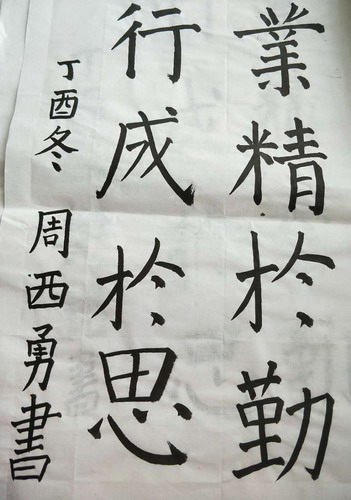 業精於勤
行成於思
丁酉冬 周西勇書